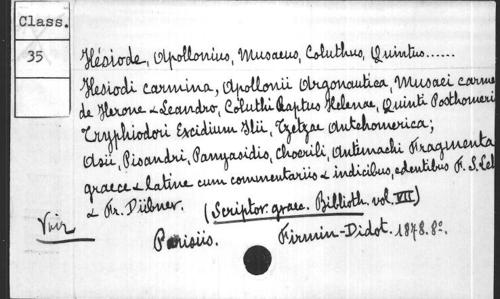 Class.
35
Hésiode, Apollonius, Musaeus, Coluthus, Quintus......
Hesiodi carmina, Apollonii Argonautica, Musaei carme
de Herone & Leandro, Coluthi Raptus Helenae, Quinti Posthomeri
Tryphiodori Excidium Ilii, Tzetzae Antehomerica;
Asii, Pisandri, Panyasidis, Choerili, Antimachi Fragmenta
graece & latine cum commentariis & indicibus, edentibus F. S. Leh
& Fr. Dübner. (Scriptor. graec. Biblioth. vol. VII)
Voir
Parisiis. Firmin-Didot. 1878. 8º.